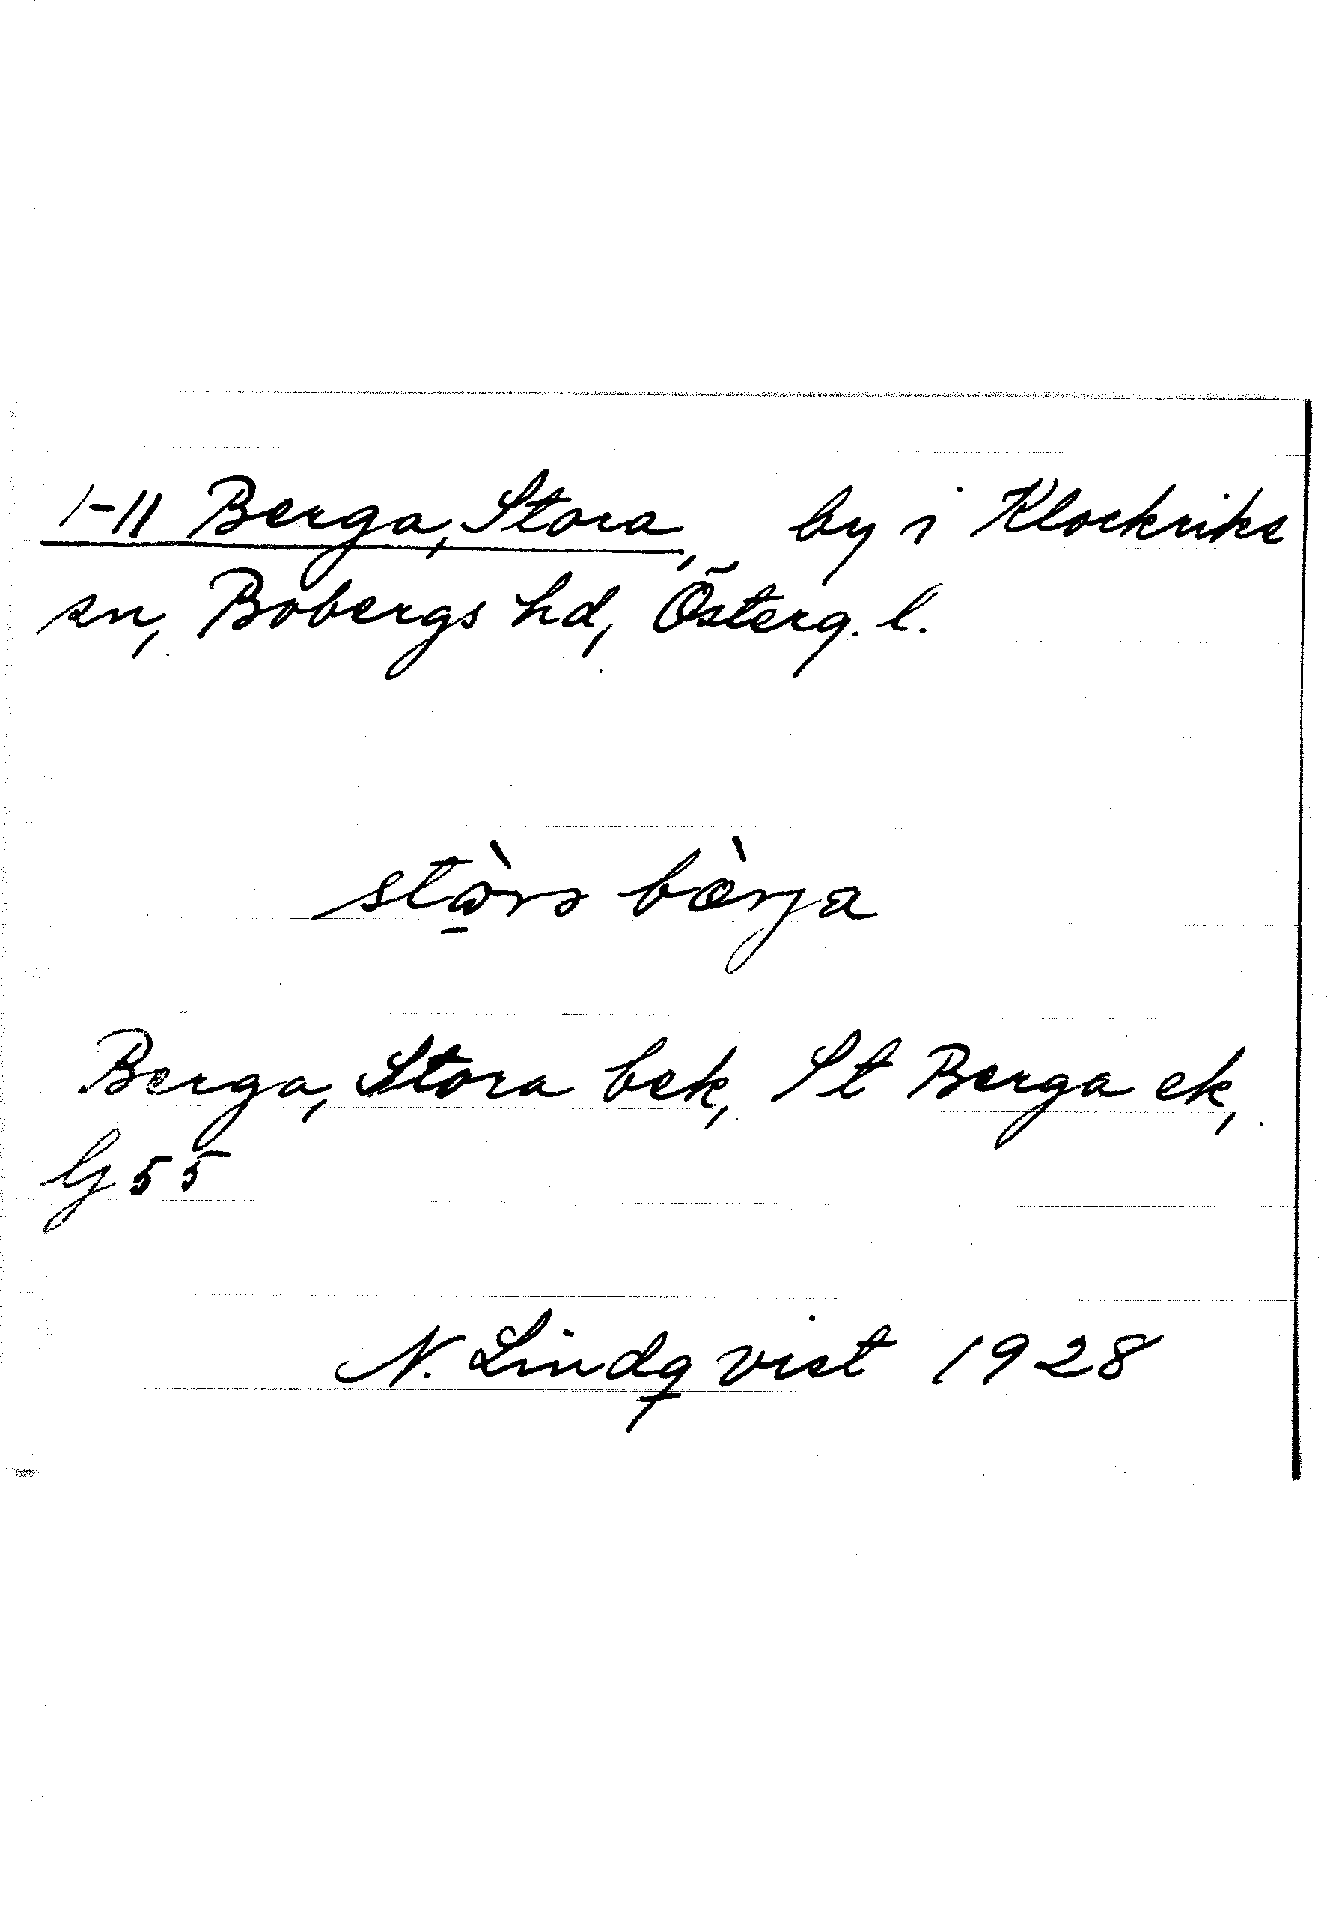 1-11 Berga, Stora, by i Klockriks
sn, Bobergs hd, Österg. l.
stὼ̱rə bæ̀rja
Berga, Stora bek, St Berga ek,
G 55
N. Lindqvist 1928